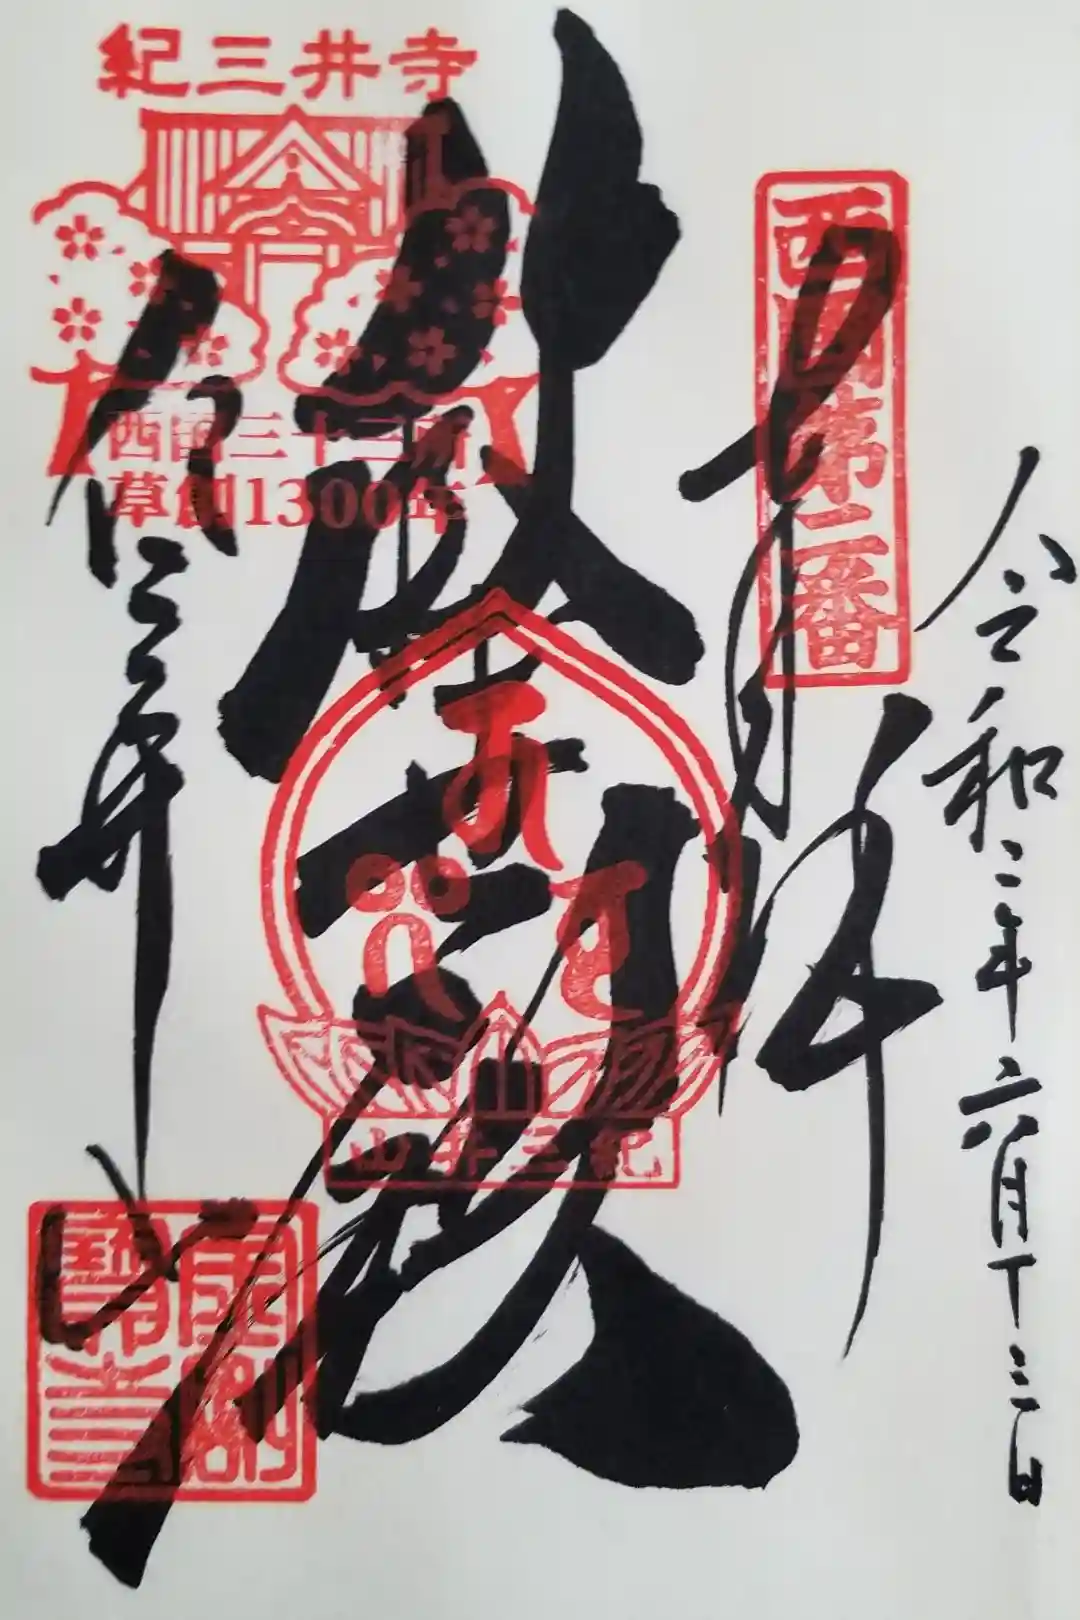 令和二年六月十三日
西国第二番
奉拝
救世殿
紀三井山
紀三井寺
西国三十三所
草創1300年
紀三井寺
金剛
寶寺